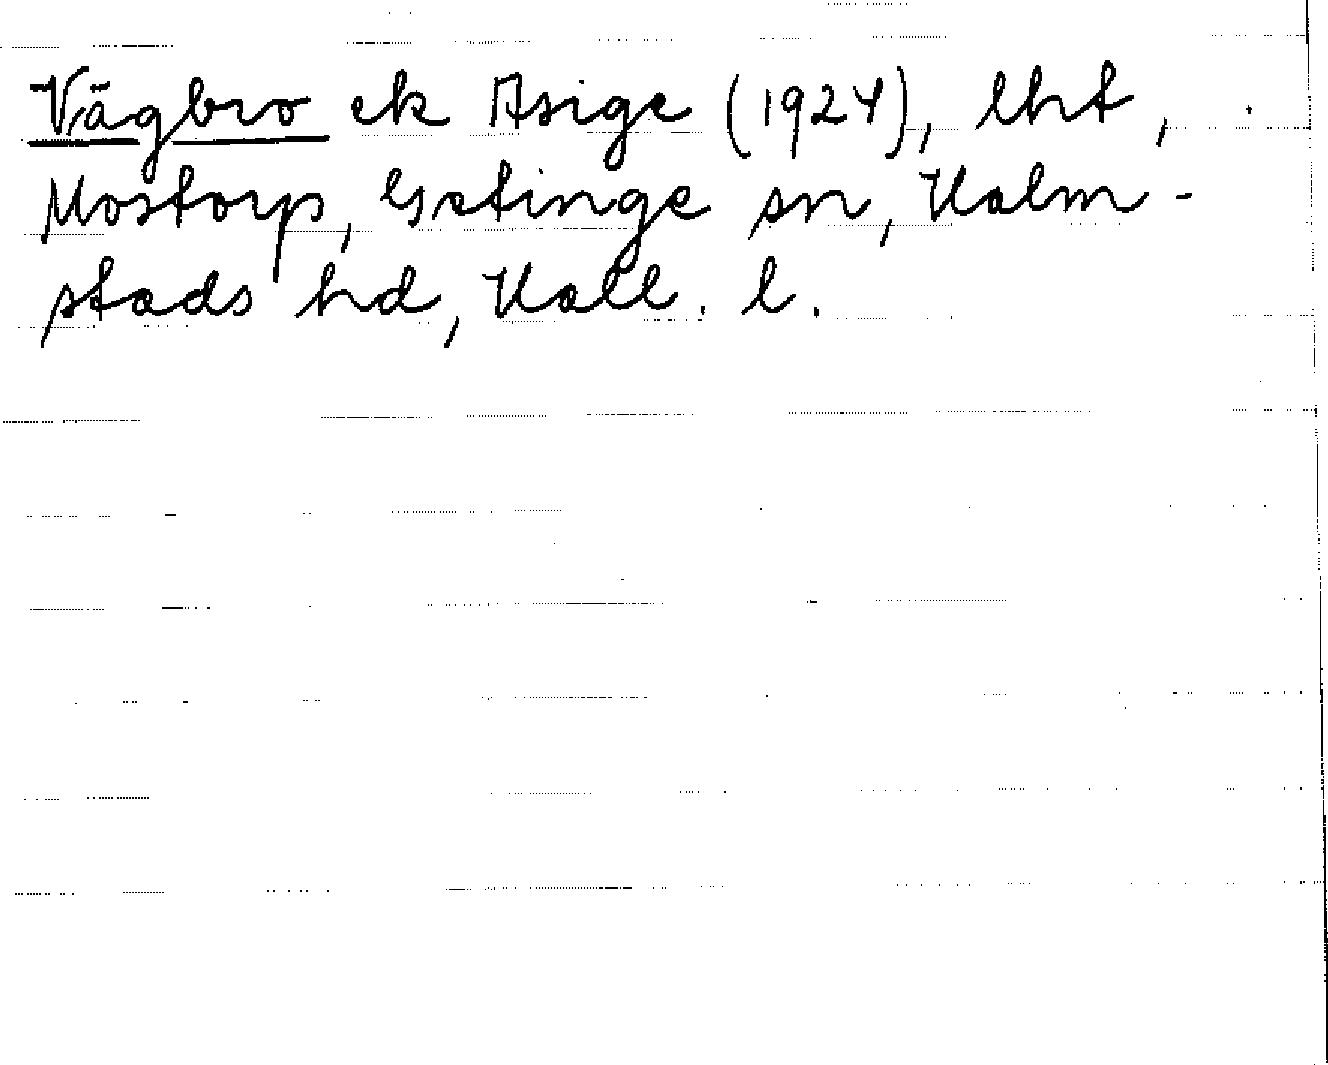 Vägbro ek Asige (1924), lht,
Mostorp, Getinge sn, Halm-
stads hd, Hall. l.